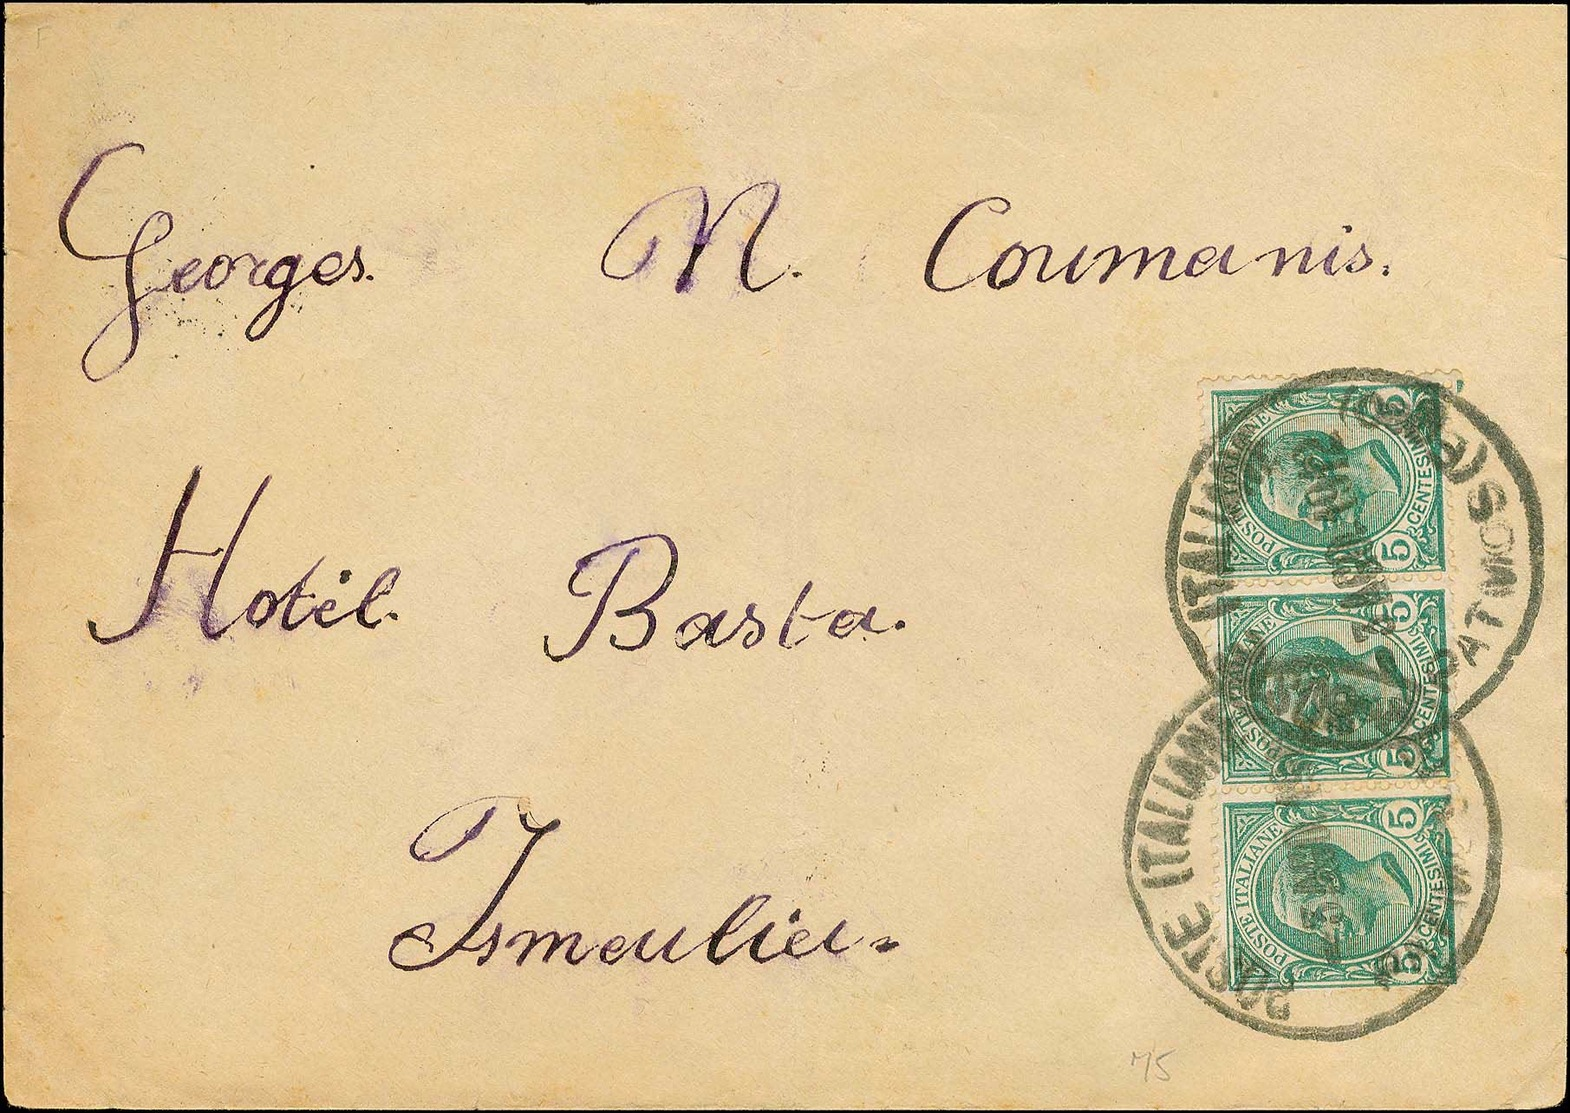 Georges. N. Coumanis.
Hotel. Basta.
Ismaulia =
POSTE ITALIANE
CENTESIMI
5 5
POSTE ITALIANE
CENTESIMI
5 5
POSTE ITALIANE
CENTESIMI
5 5
ITALIANE
PATMOS
POSTE ITALIANE